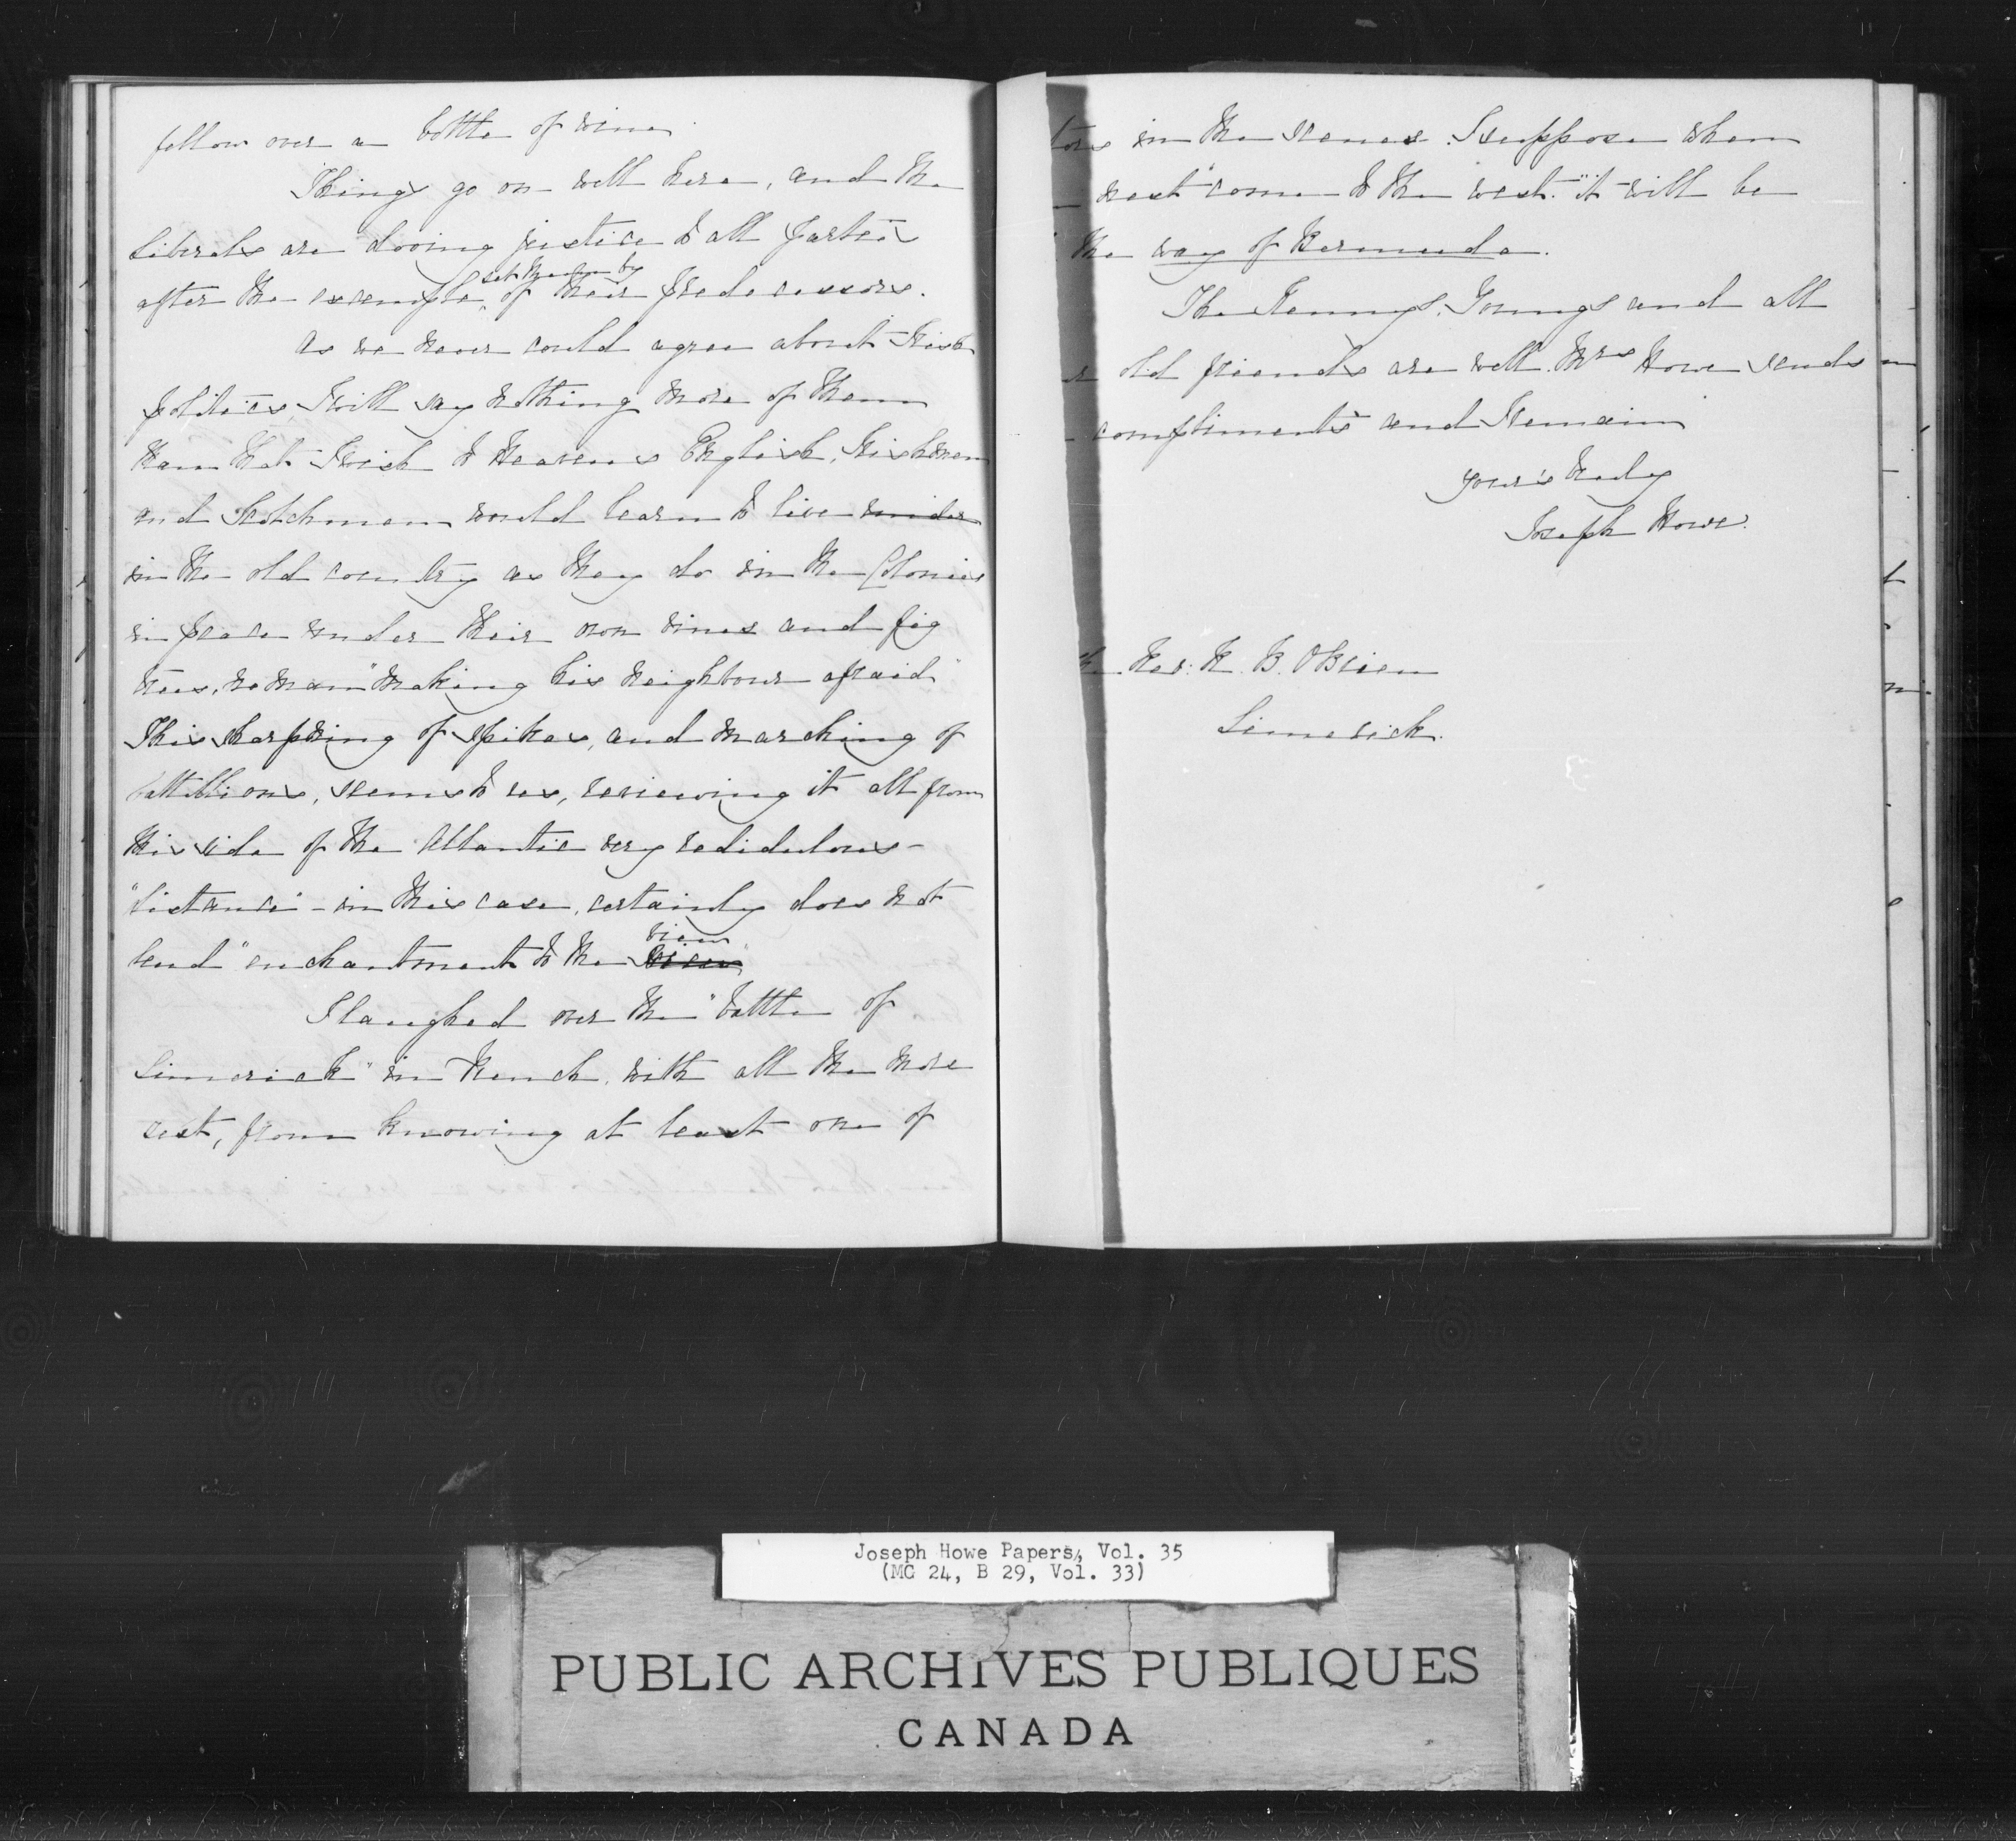 fellow over a bottle of wine.
Things go on well here, and the
Liberals are dooing justice to all parties
set them by
after the example, of their predecessors.
As we never could agree about Irish
politics, I will say nothing more of them
than that I wish to Heavens English, Irishmen
and Scotchmen would learn to live under
in the old country as they do in the Colonies
in peace under their own vines and fig
trees, no man "making his neighbour afraid"
This sharpning of spikes, and marching of
battillions, seems to us, reviewing it all from
this side of the Atlantic very redidulous –
"distance" – in this case, certainly does not
lend "enchantment to the
view
I laughed over the "battle of
Limerick" in Punch, with all the more
zest, from knowing at least one of
tors in the scenes. I suppose when
next "come to the west." it will be
the way of Bermuda.
The Kennys, Youngs and all
r old friends are well. Mrs Howe sends
compliments and I remain
your's truly
Joseph Howe.
Rev: R. B. OBrien
Limerick.
Joseph Howe Papers, Vol. 35
(MG 24, B 29, Vol. 33)
PUBLIC ARCHIVES PUBLIQUES
CANADA